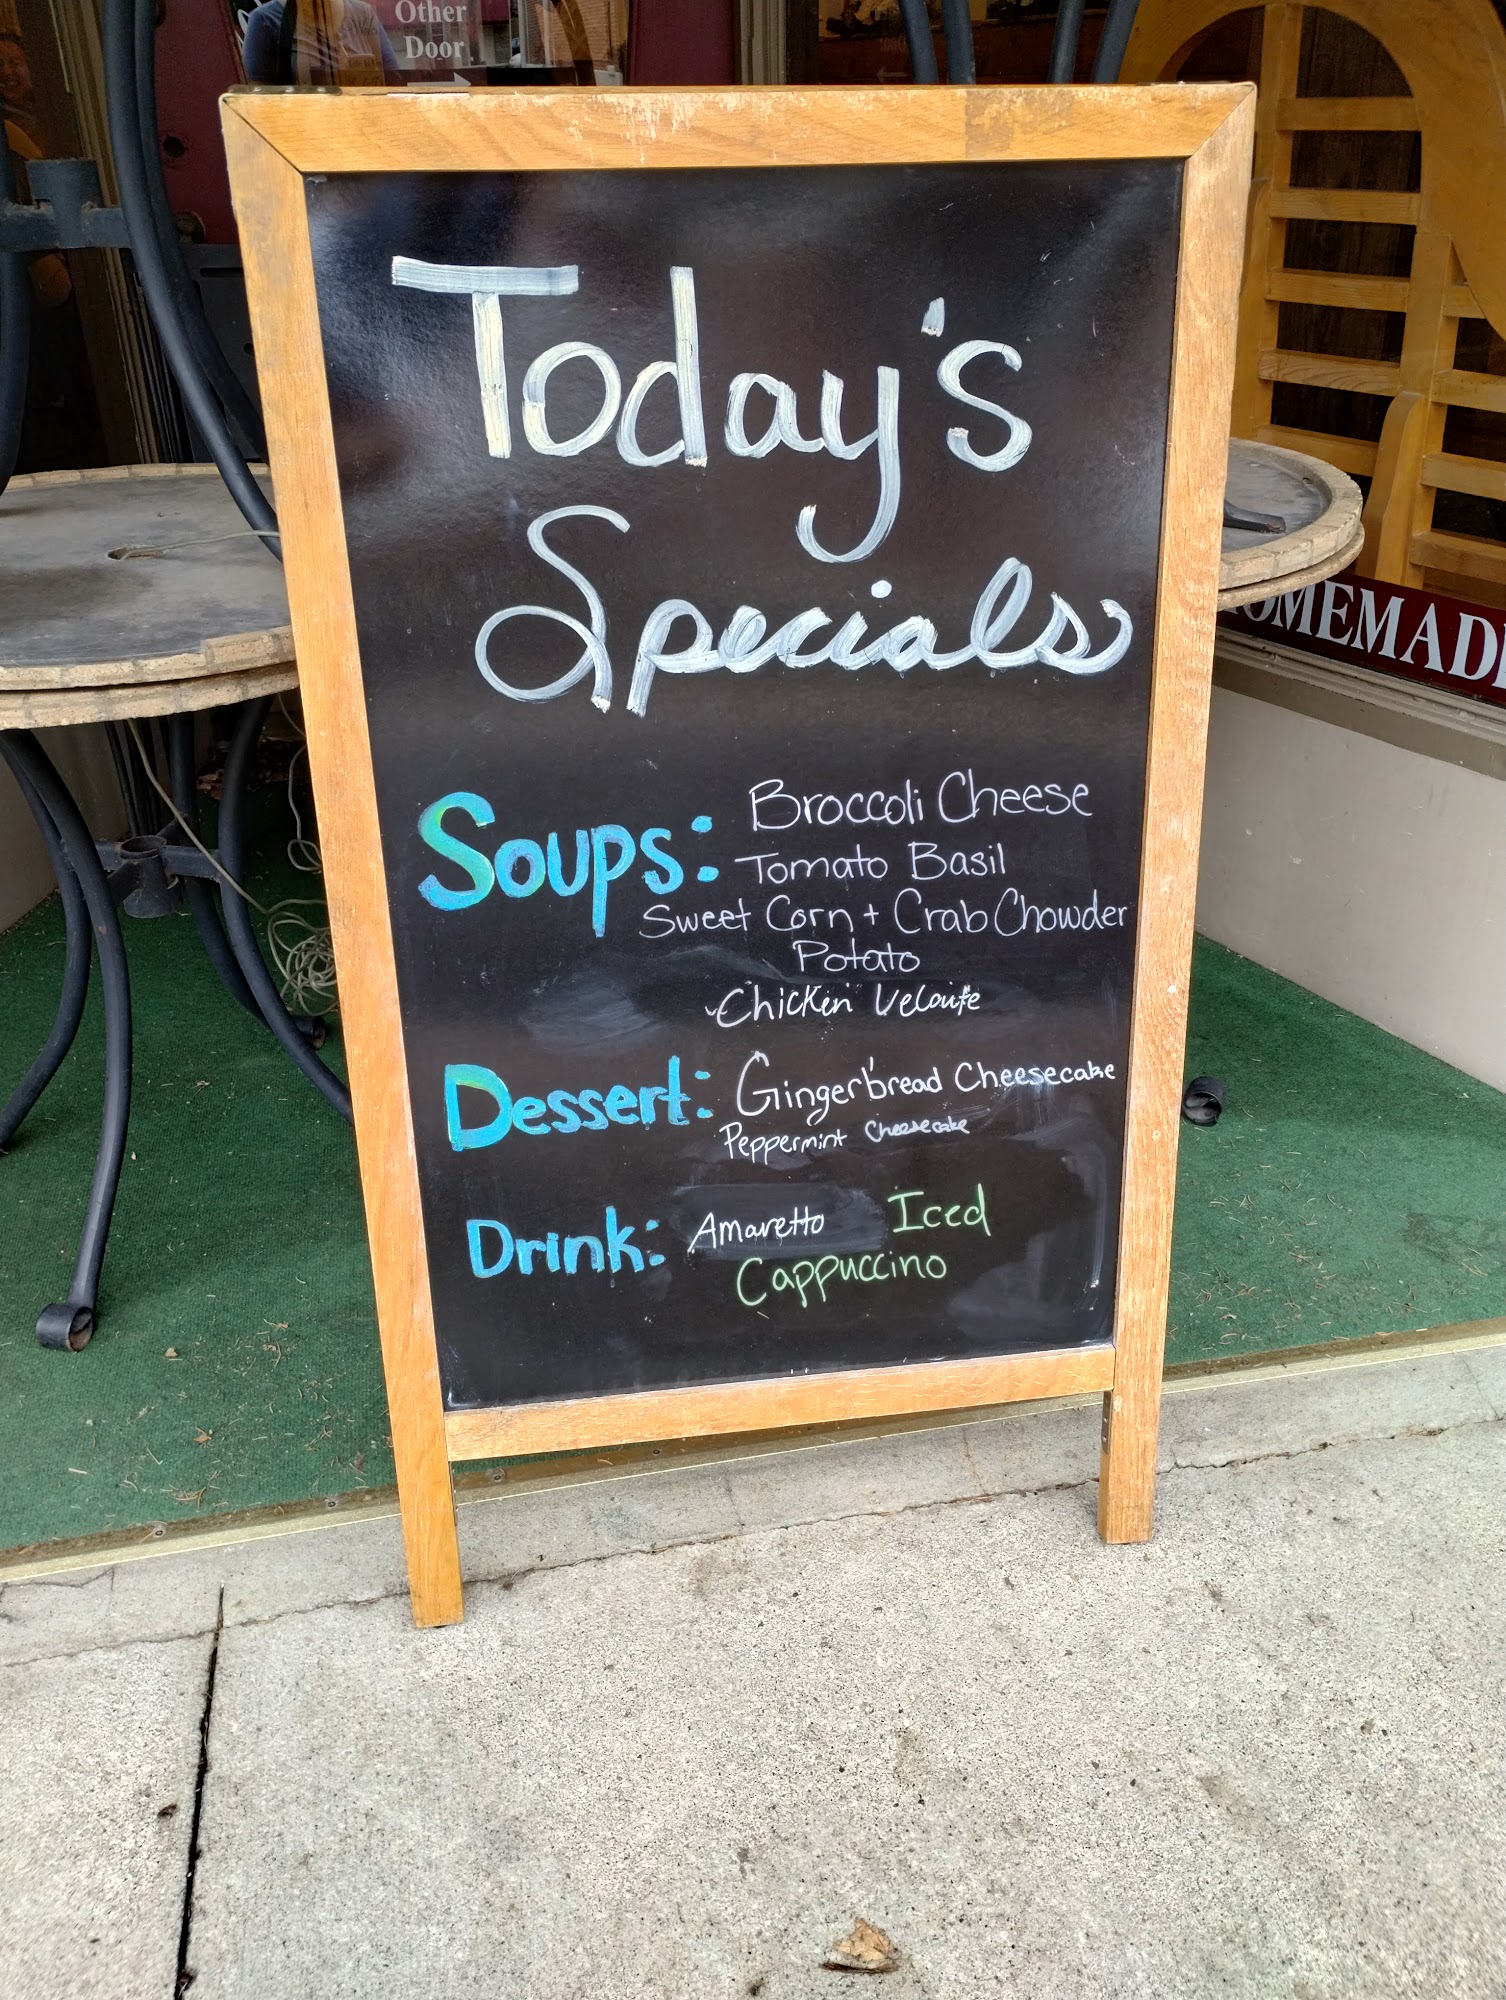 Other
Door
Today's
Specials
Soups: Broccoli Cheese
Tomato Basil
Sweet Corn + Crab Chowder
Potato
Chicken Veloute
Dessert: Gingerbread Cheesecake
Peppermint Cheesecake
Drink: Amaretto Iced
Cappuccino
OMEMAD